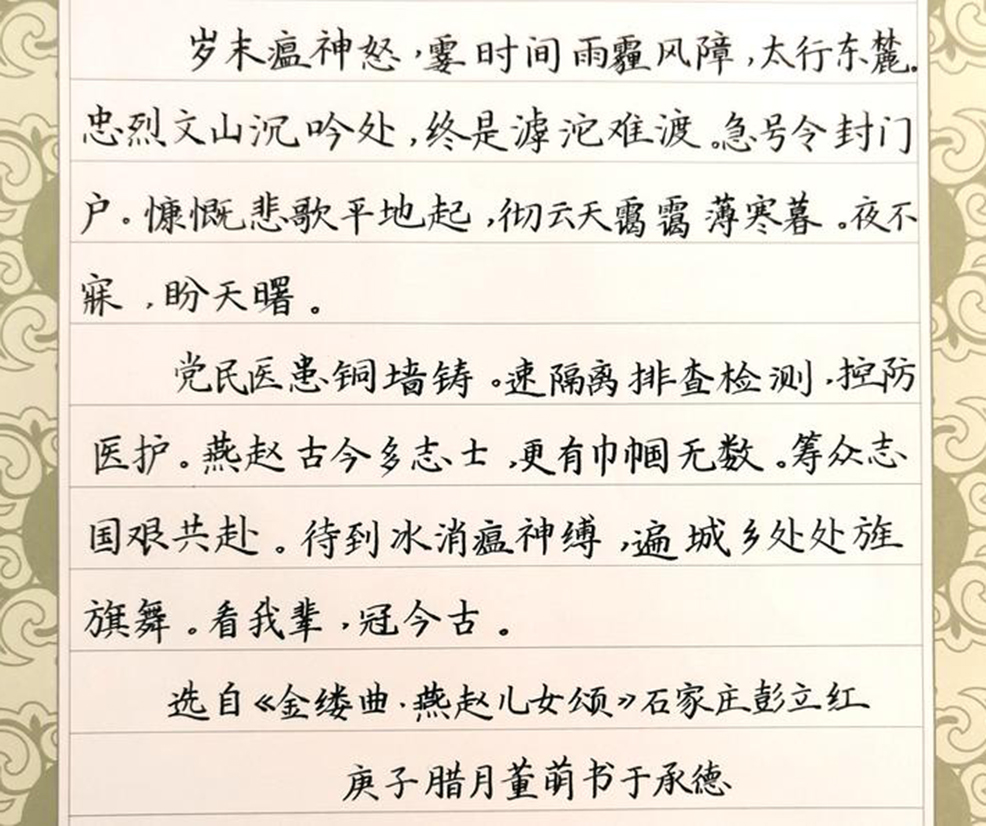 岁末瘟神怒,霎时间雨霾风障,太行东麓。
忠烈文山沉吟处,终是滹沱难渡。急号令封门
户。慷慨悲歌平地起,彻云天霭霭薄寒暮。夜不
寐,盼天曙。
党民医患铜墙铸。速隔离排查检测,控防
医护。燕赵古今多志士,更有巾帼无数。筹众志
国艰共赴。待到冰消瘟神缚,遍城乡处处旌
旗舞。看我辈,冠今古。
选自《金缕曲·燕赵儿女颂》石家庄彭立红
庚子腊月董萌书于承德